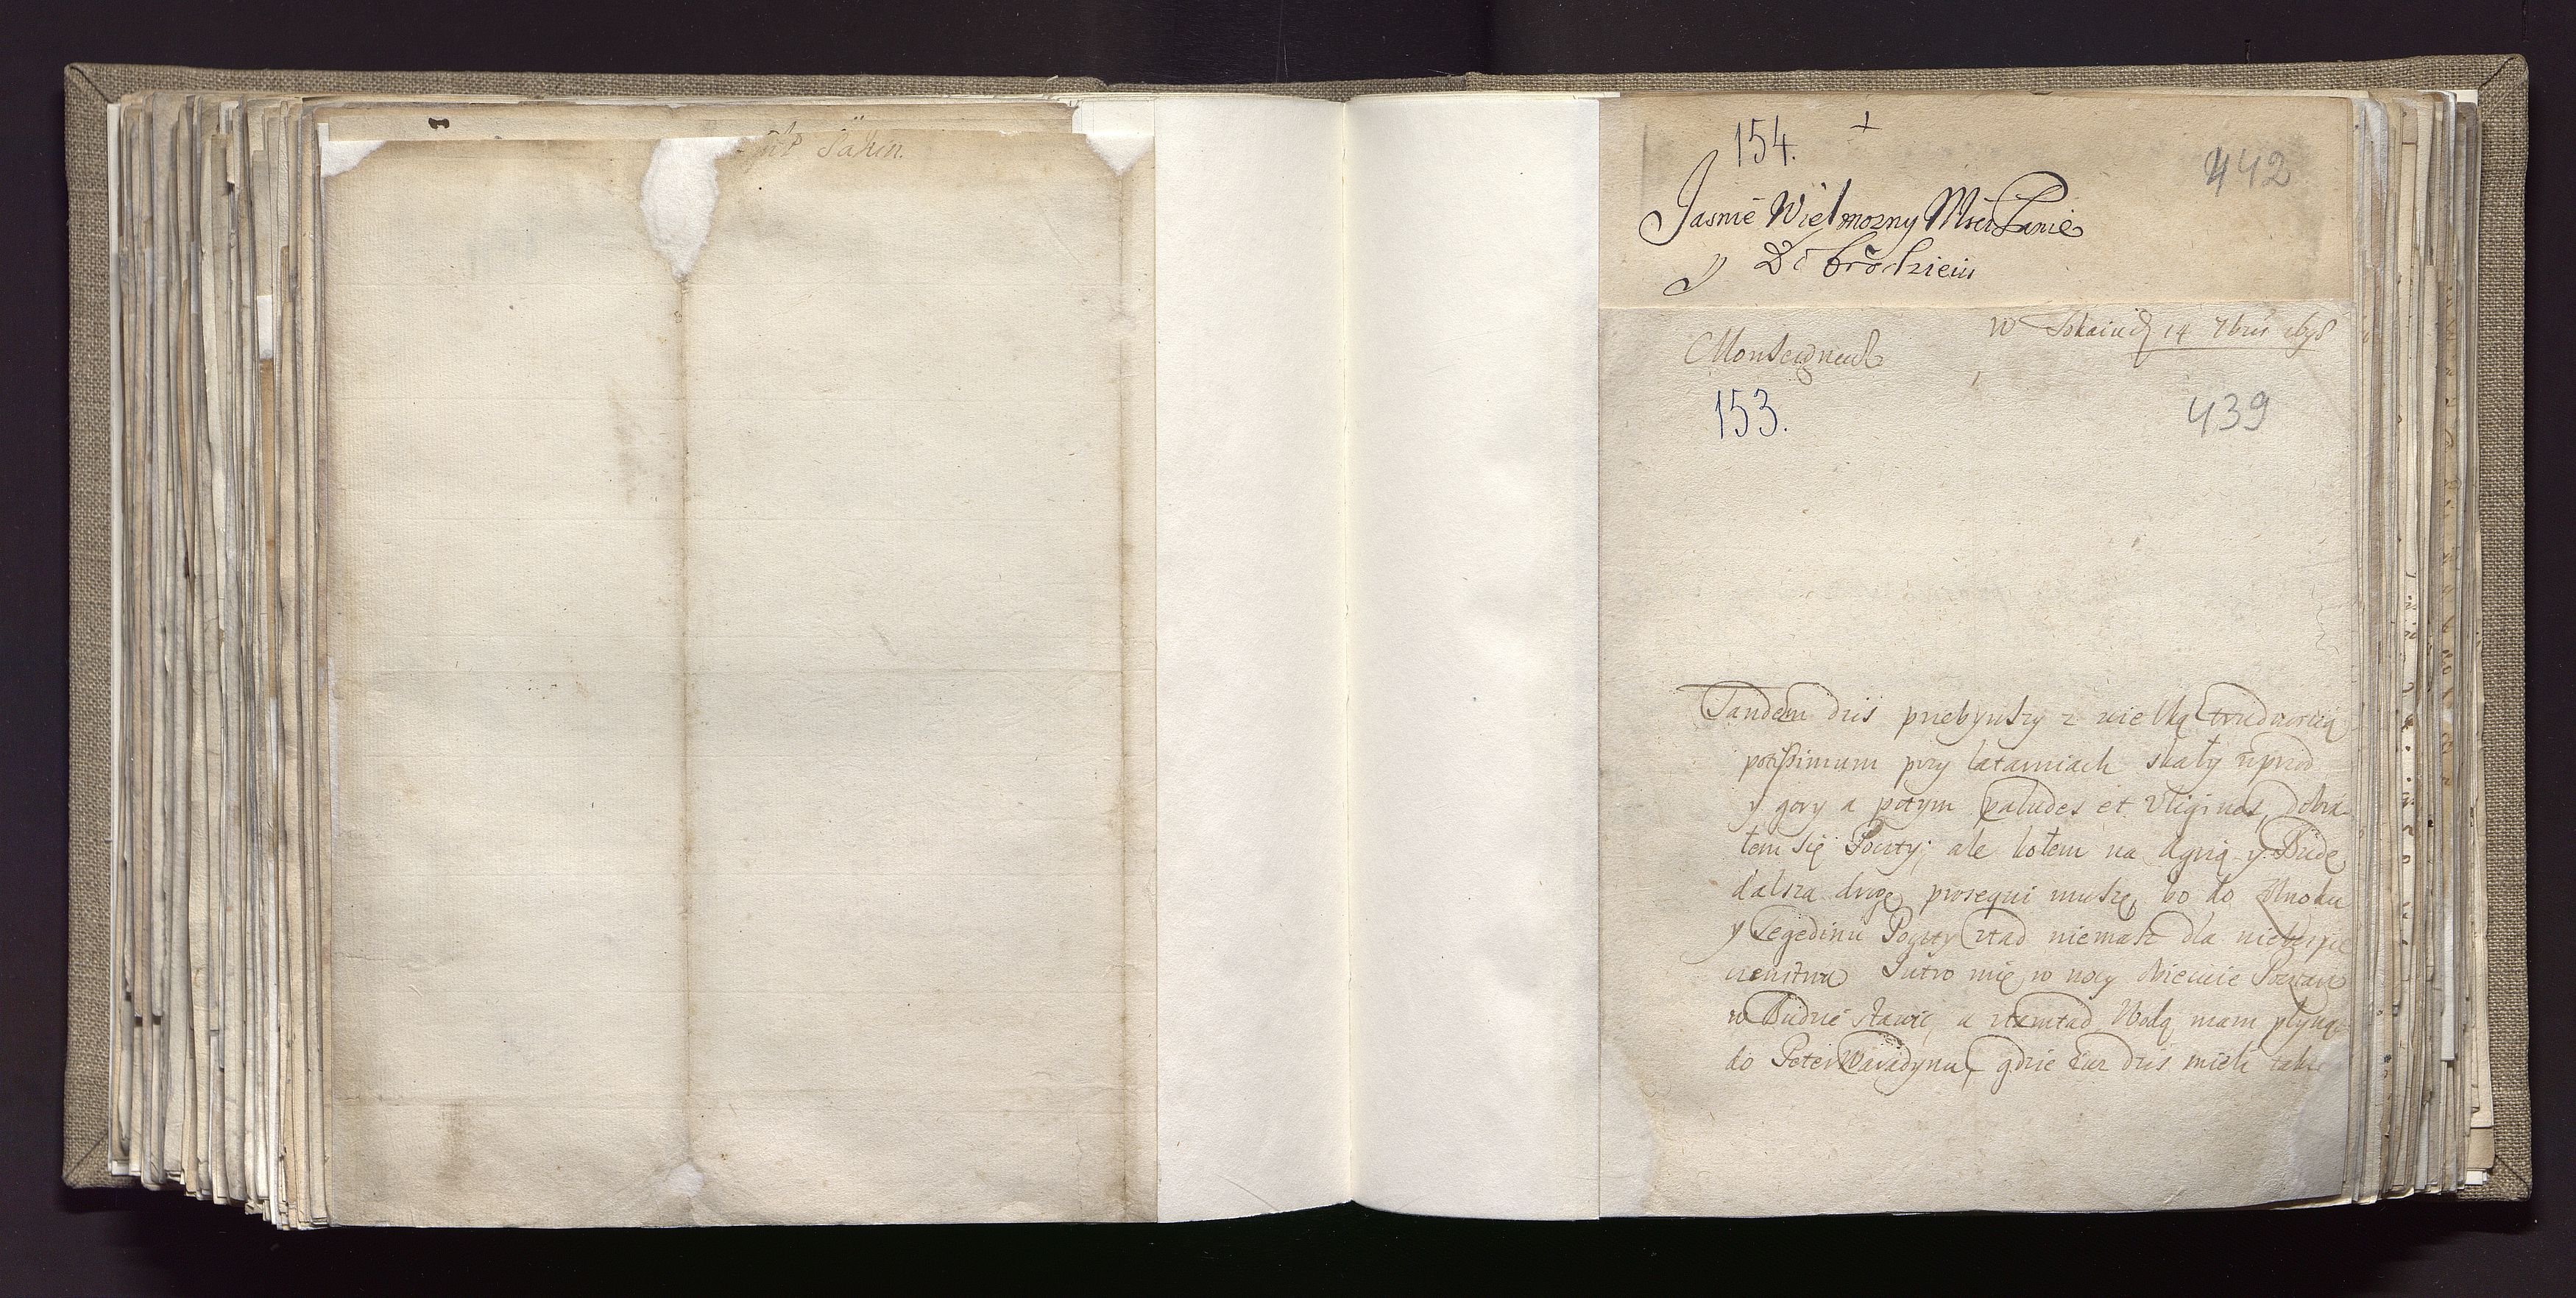 154. +
442
Jasnie Wielmozny Msci Panie
y Dobrodzieiu
W Tokaiu 14 7bris 1698
Monseigneur
153.
439
Tandem dzis przebywszy z wielką trudnoscią
potissimum przy latarniach skały wprzod
y gory a potym paludes et uligines, dobra-
łem się Poczty; ale kołem na Agrią y Budę
dalszą drogę prosequi muszę, bo do Solnoku
y Segedinu Poczty ztad niemasz dla niebespie
czenstwa Jutro mię w nocy obiecuie Pocztarz
w Budzie stawic, a ztamtad Wodą mam płynąc
do Peter Waradynu, gdzie dzis